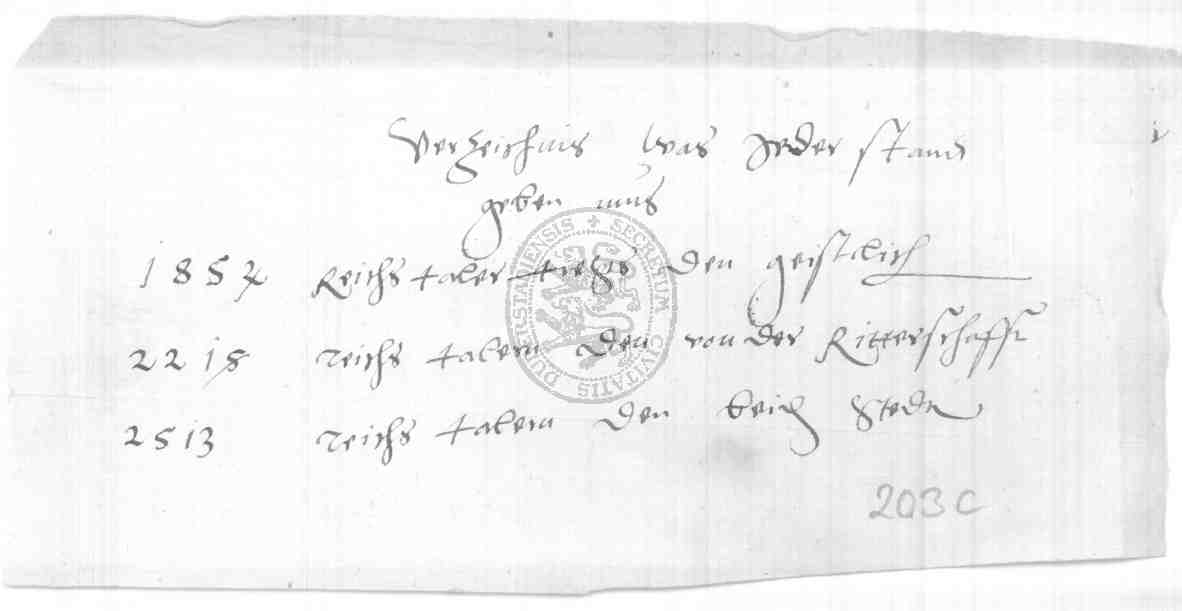 Verzeichnis was Jeder stand
geben mus
1854 Reichs taler tregts den geistlich
2218 reichs talern den von der Ritterschafft
2513 reichs talern den beid Stedn
203 C
SECRETUM CIVITATIS DUDERSTATENSIS